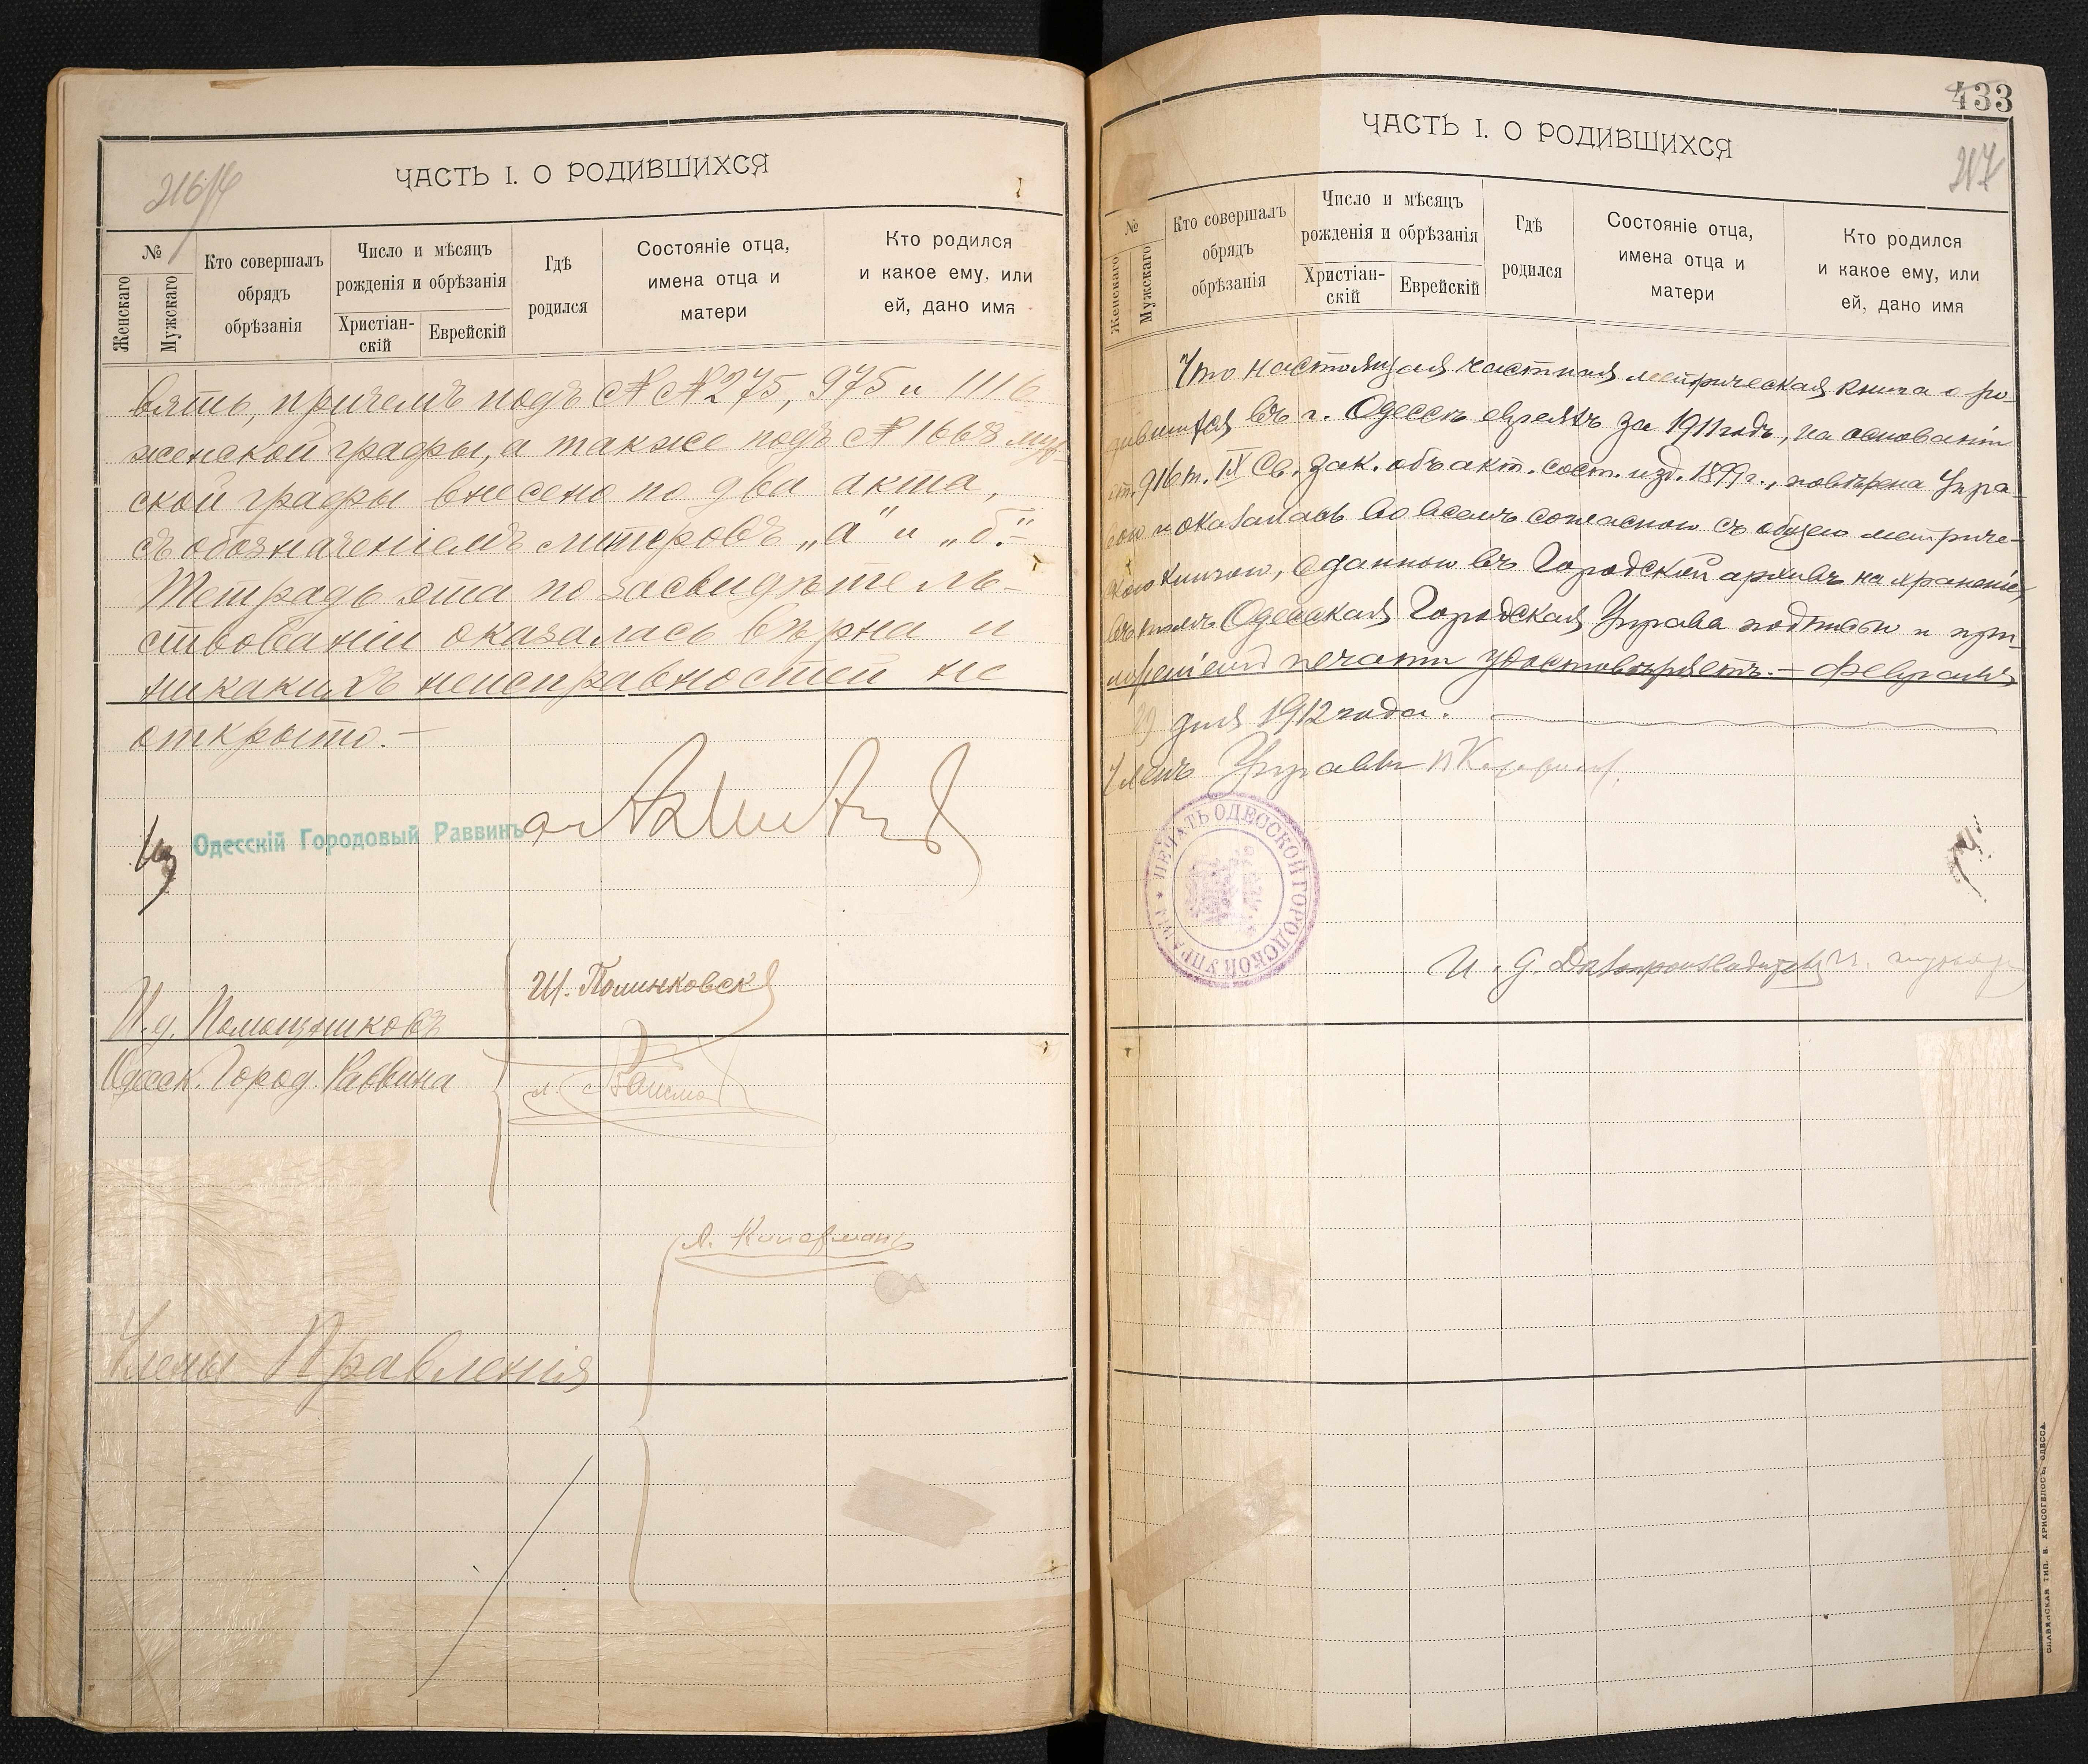 216
ЧАСТЬ I. О РОДИВШИХСЯ
№
Женскаго
Мужскаго
Кто совершалъ
обрядъ
обрѣзанія
Число и мѣсяцъ
рожденія и обрѣзанія
Христіан-
скій
Еврейскій
Гдѣ
родился
Состояніе отца,
имена отца и
матери
Кто родился
и какое ему, или
ей, дано имя
вять, причемъ подъ №№ 275, 975 и 1116
женской графы, а также подъ № 1668 муж-
ской графы внесено по два акта,
съ обозначеніемъ литеровъ „а" и „б".-
Тетрадь эта по засвидѣтель-
ствованіи оказалась вѣрна и
никакихъ неисправностей не
открыто.-
Одесскій Городовый Раввинъ
И.д. Помощниковъ
Одесск. Город. Раввина
Ш. Полинковск
Члены Правленія
433
ЧАСТЬ I. О РОДИВШИХСЯ
217
№
Женскаго
Мужскаго
Кто совершалъ
обрядъ
обрѣзанія
Число и мѣсяцъ
рожденія и обрѣзанія
Христіан-
скій
Еврейскій
Гдѣ
родился
Состояніе отца,
имена отца и
матери
Кто родился
и какое ему, или
ей, дано имя
Что настоящая частная метрическая книга о ро-
дившихся въ г. Одессѣ евреяхъ за 1911 годъ, на основаніи
ст. 916 т. IX Св. зак. объ акт. сост. изд. 1899 г., повѣрена Упра-
вою и оказалась во всемъ согласною съ общею метриче-
скою книгою, сданною въ Городской архивъ на храненіе,
въ томъ Одесская Городская Управа подписью и при-
ложеніемъ печати удостовѣряетъ. - Февраля
дня 1912 года.
Членъ Управы
ПЕЧАТЬ ОДЕССКОЙ ГОРОДСКОЙ УПРАВЫ
И. д. Делопроизводителя
СЛАВЯНСКАЯ ТИП. Н. ХРИСОГЕЛОСЪ, ОДЕССА.